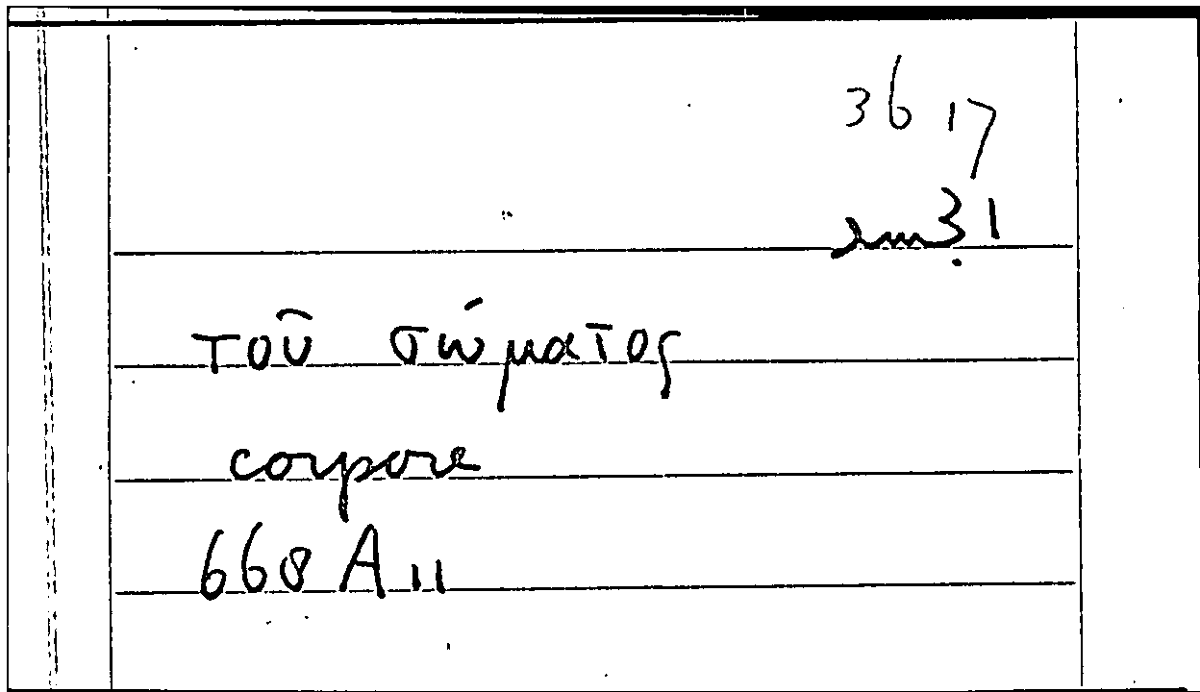 36 17
τοῦ σώματος
corpore
668 A 11